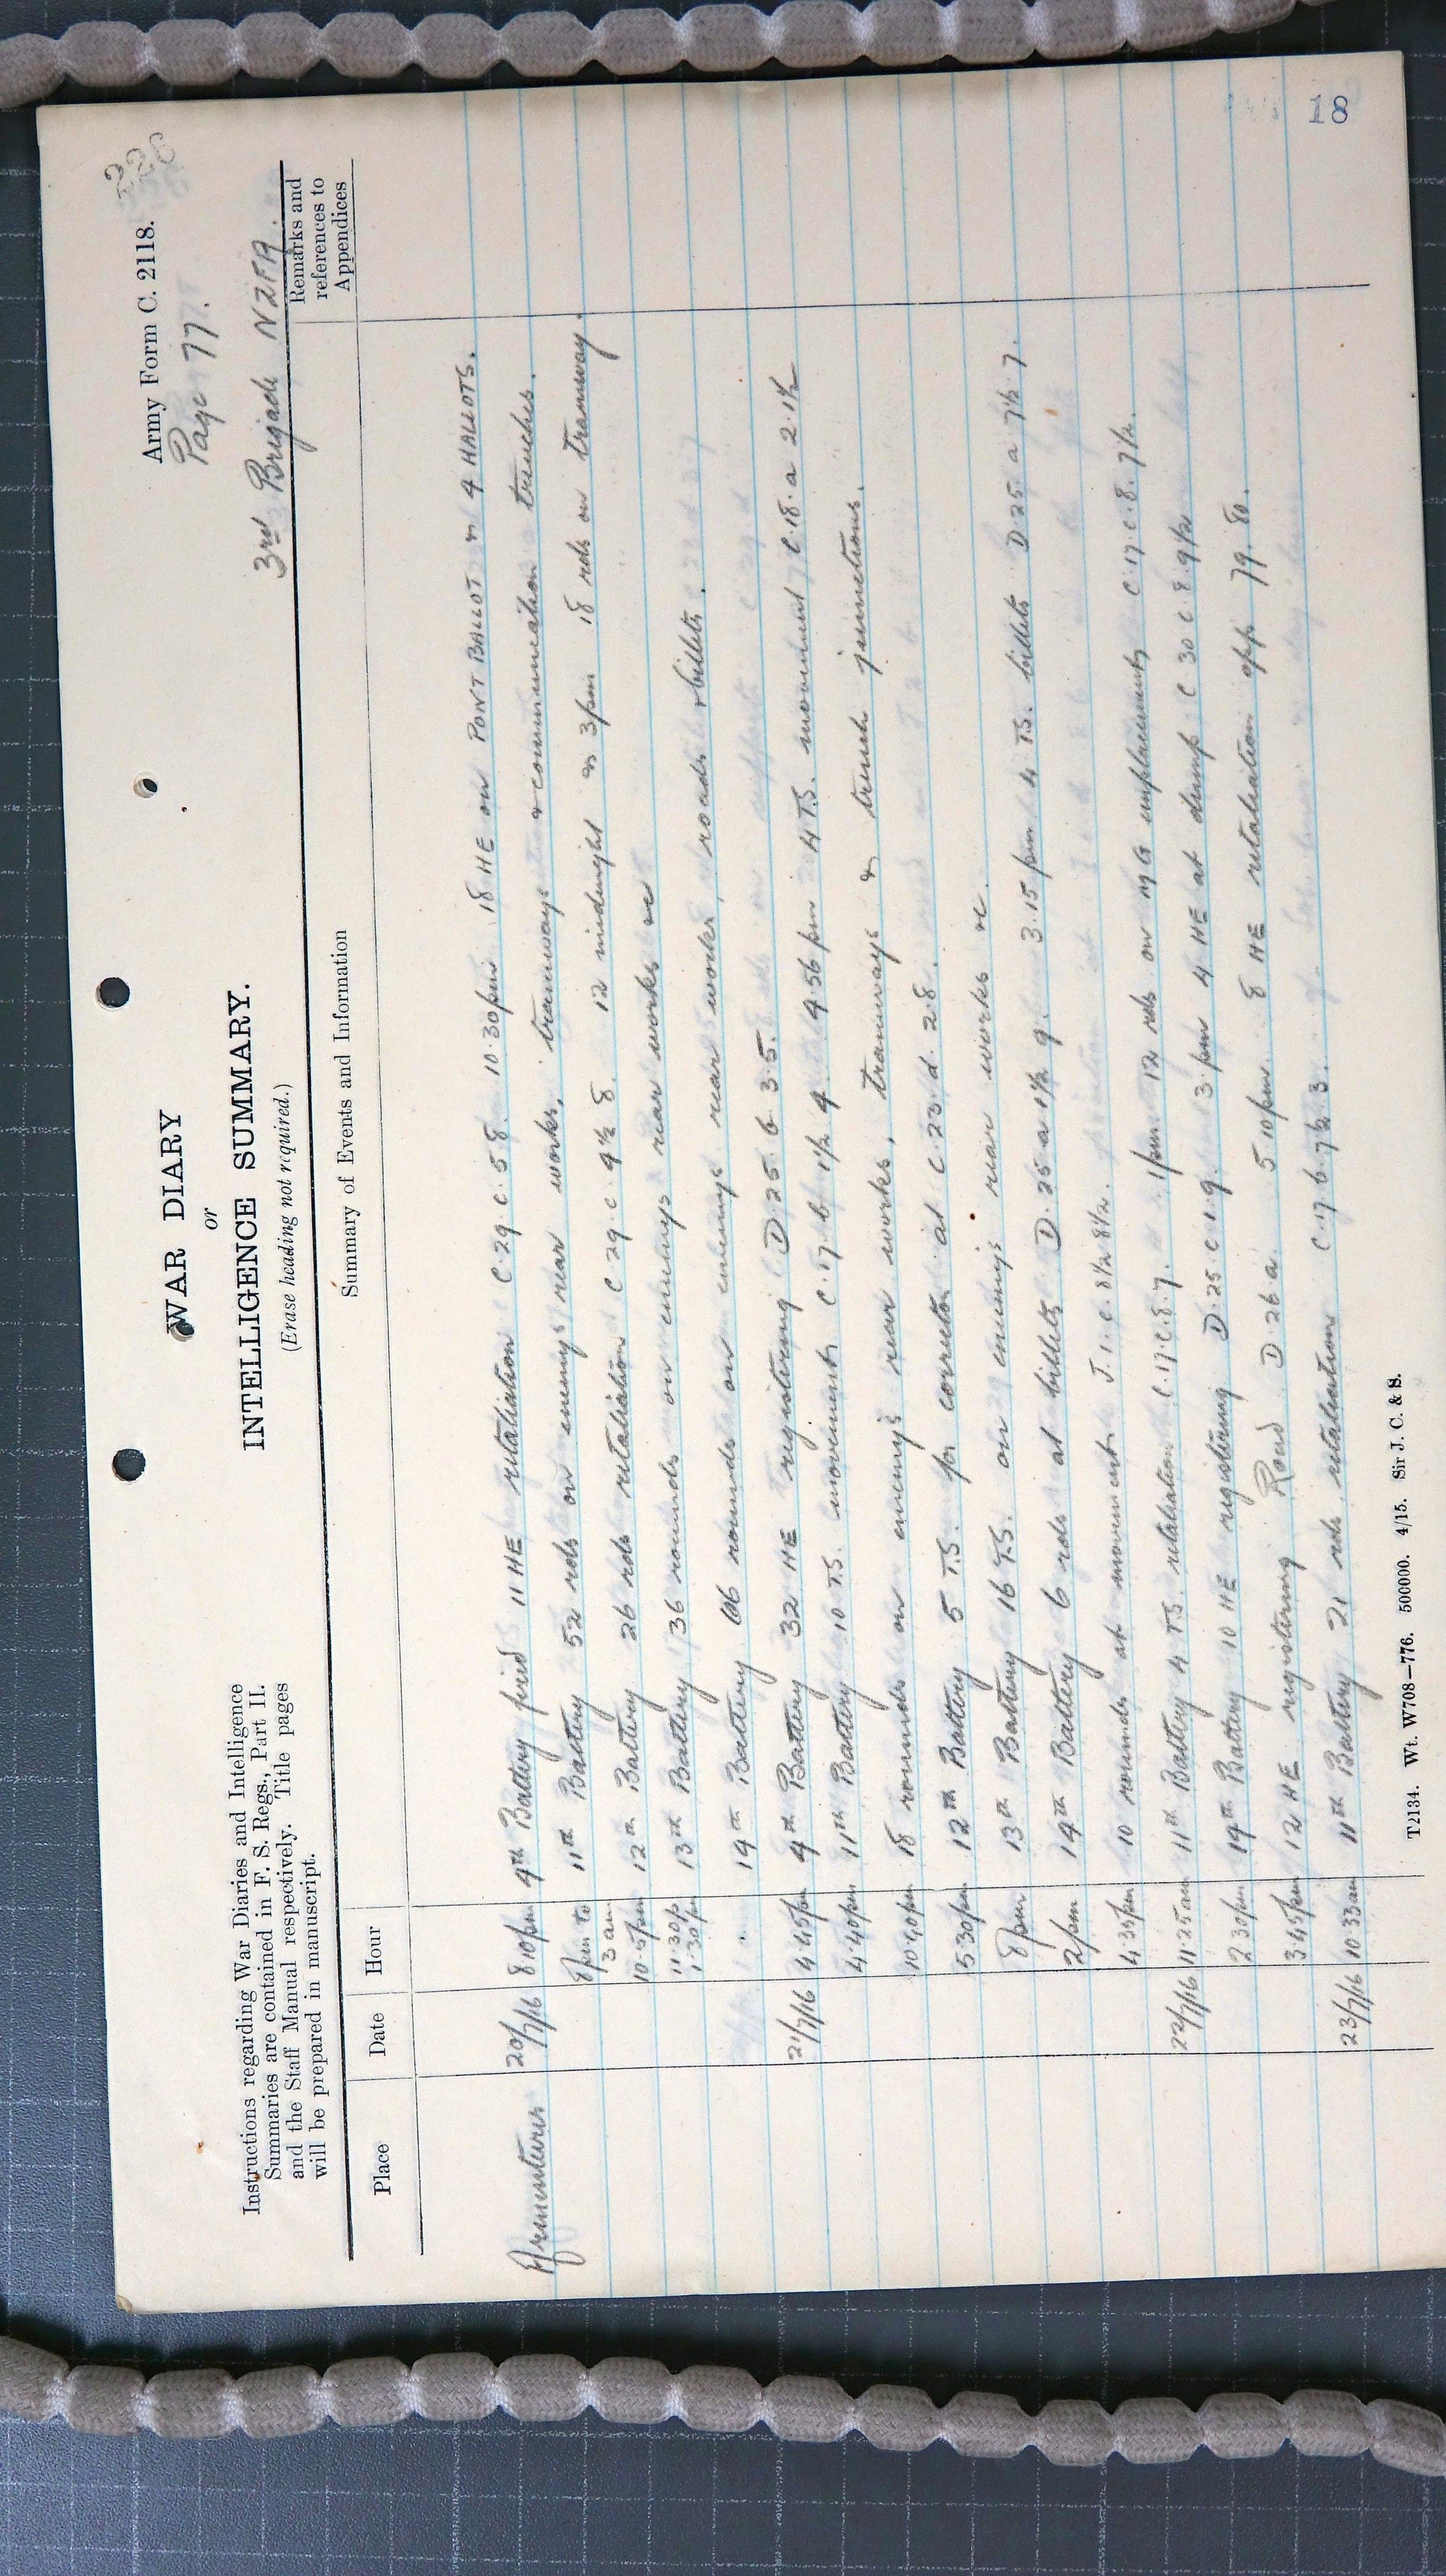 Army Form C. 2118.
226
Page 77.
WAR DIARY
or
INTELLIGENCE SUMMARY.
(Erase heading not required.)
3rd Brigade NZFA.
Instructions regarding War Diaries and Intelligence
Summaries are contained in F. S. Regs., Part II.
and the Staff Manual respectively. Title pages
will be prepared in manuscript.
Place Date Hour Summary of Events and Information Remarks and references to Appendices
Armentieres 20/7/16 8.10pm 9th Battery fired 11 HE retaliation C.29.c.5.8. 10.30pm 18 HE on PONT BALLOT 4 HALLOTS.
8pm to 3am 11th Battery 52 rds on enemys rear works, tramways & communication trenches.
10.5pm 12th Battery 26 rds retaliation C.29.c.4½ 8. 12 midnight 3pm 18 rds on tramway.
11.30p 1.30pm 13th Battery 36 rounds on enemys rear works &c
14th Battery 66 rounds on enemys rear works, roads & billets.
21/7/16 4.45pm 9th Battery 32 HE registering D.25.b.3.5.
4.40pm 11th Battery 10 T.S. movement C.17.b.1½ 4. 4.56pm 4 T.S. movement C.18.a 2.1½
10.40pm 18 rounds on enemy's rear works, tramways & trench junctions.
5.30pm 12th Battery 5 T.S. for correction at C.23.d.2.8.
8pm 13th Battery 16 T.S. on enemys rear works &c.
2pm 14th Battery 6 rds at billets D.25 a 1½ 9. 3.15pm 4 T.S. billets D.25 a 7½.7.
4.35pm 10 rounds at movement J.1.c.8½ 8½.
22/7/16 11.25am 11th Battery 4 T.S. retaliation C.17.c.8.7. 1pm 12 rds on MG emplacements C.17.c.8.7½.
2.30pm 14th Battery 10 HE registering D.25.c.1.9. 3.pm 4 HE at dump C 30 c.8.9½
3.45pm 12 HE registering Road D.26.a. 5.10pm 8 HE retaliation opp 79.80.
23/7/16 10.33am 11th Battery 21 rds retaliation C.17.b.7½ 3.
T2134. Wt. W708—776. 500000. 4/15. Sir J. C. & S.
18